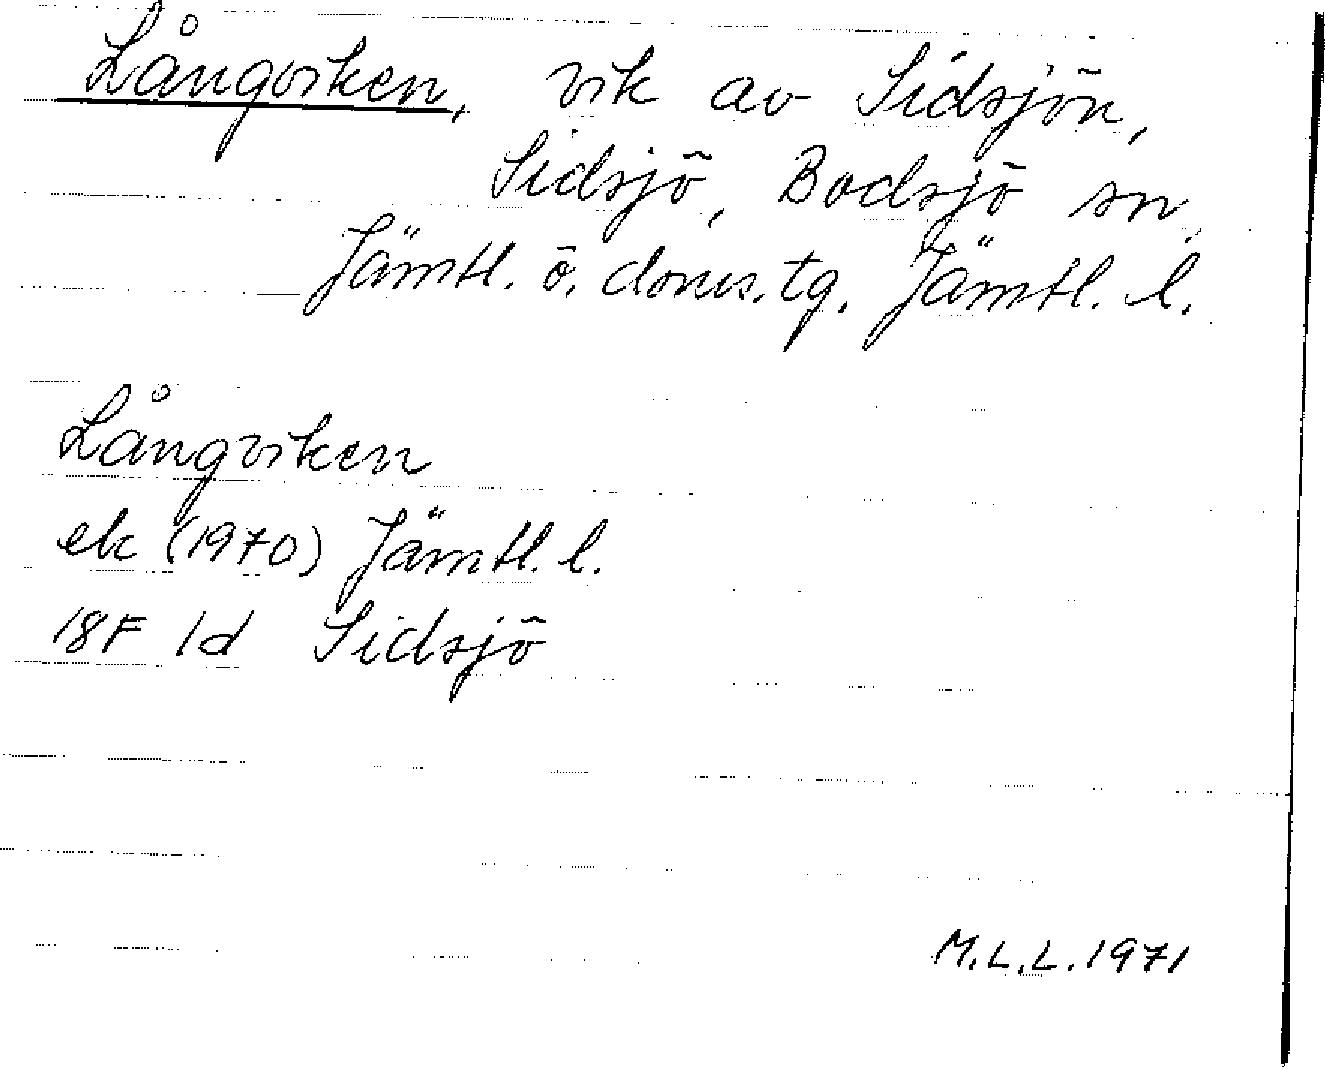 Långviken, vik av Sidsjön,
Sidsjö, Bodsjö sn
Jämtl. ö. doms. tg. Jämtl. l.
Långviken
ek (1970) Jämtl. l.
18F 1d Sidsjö
M.L.L. 1971